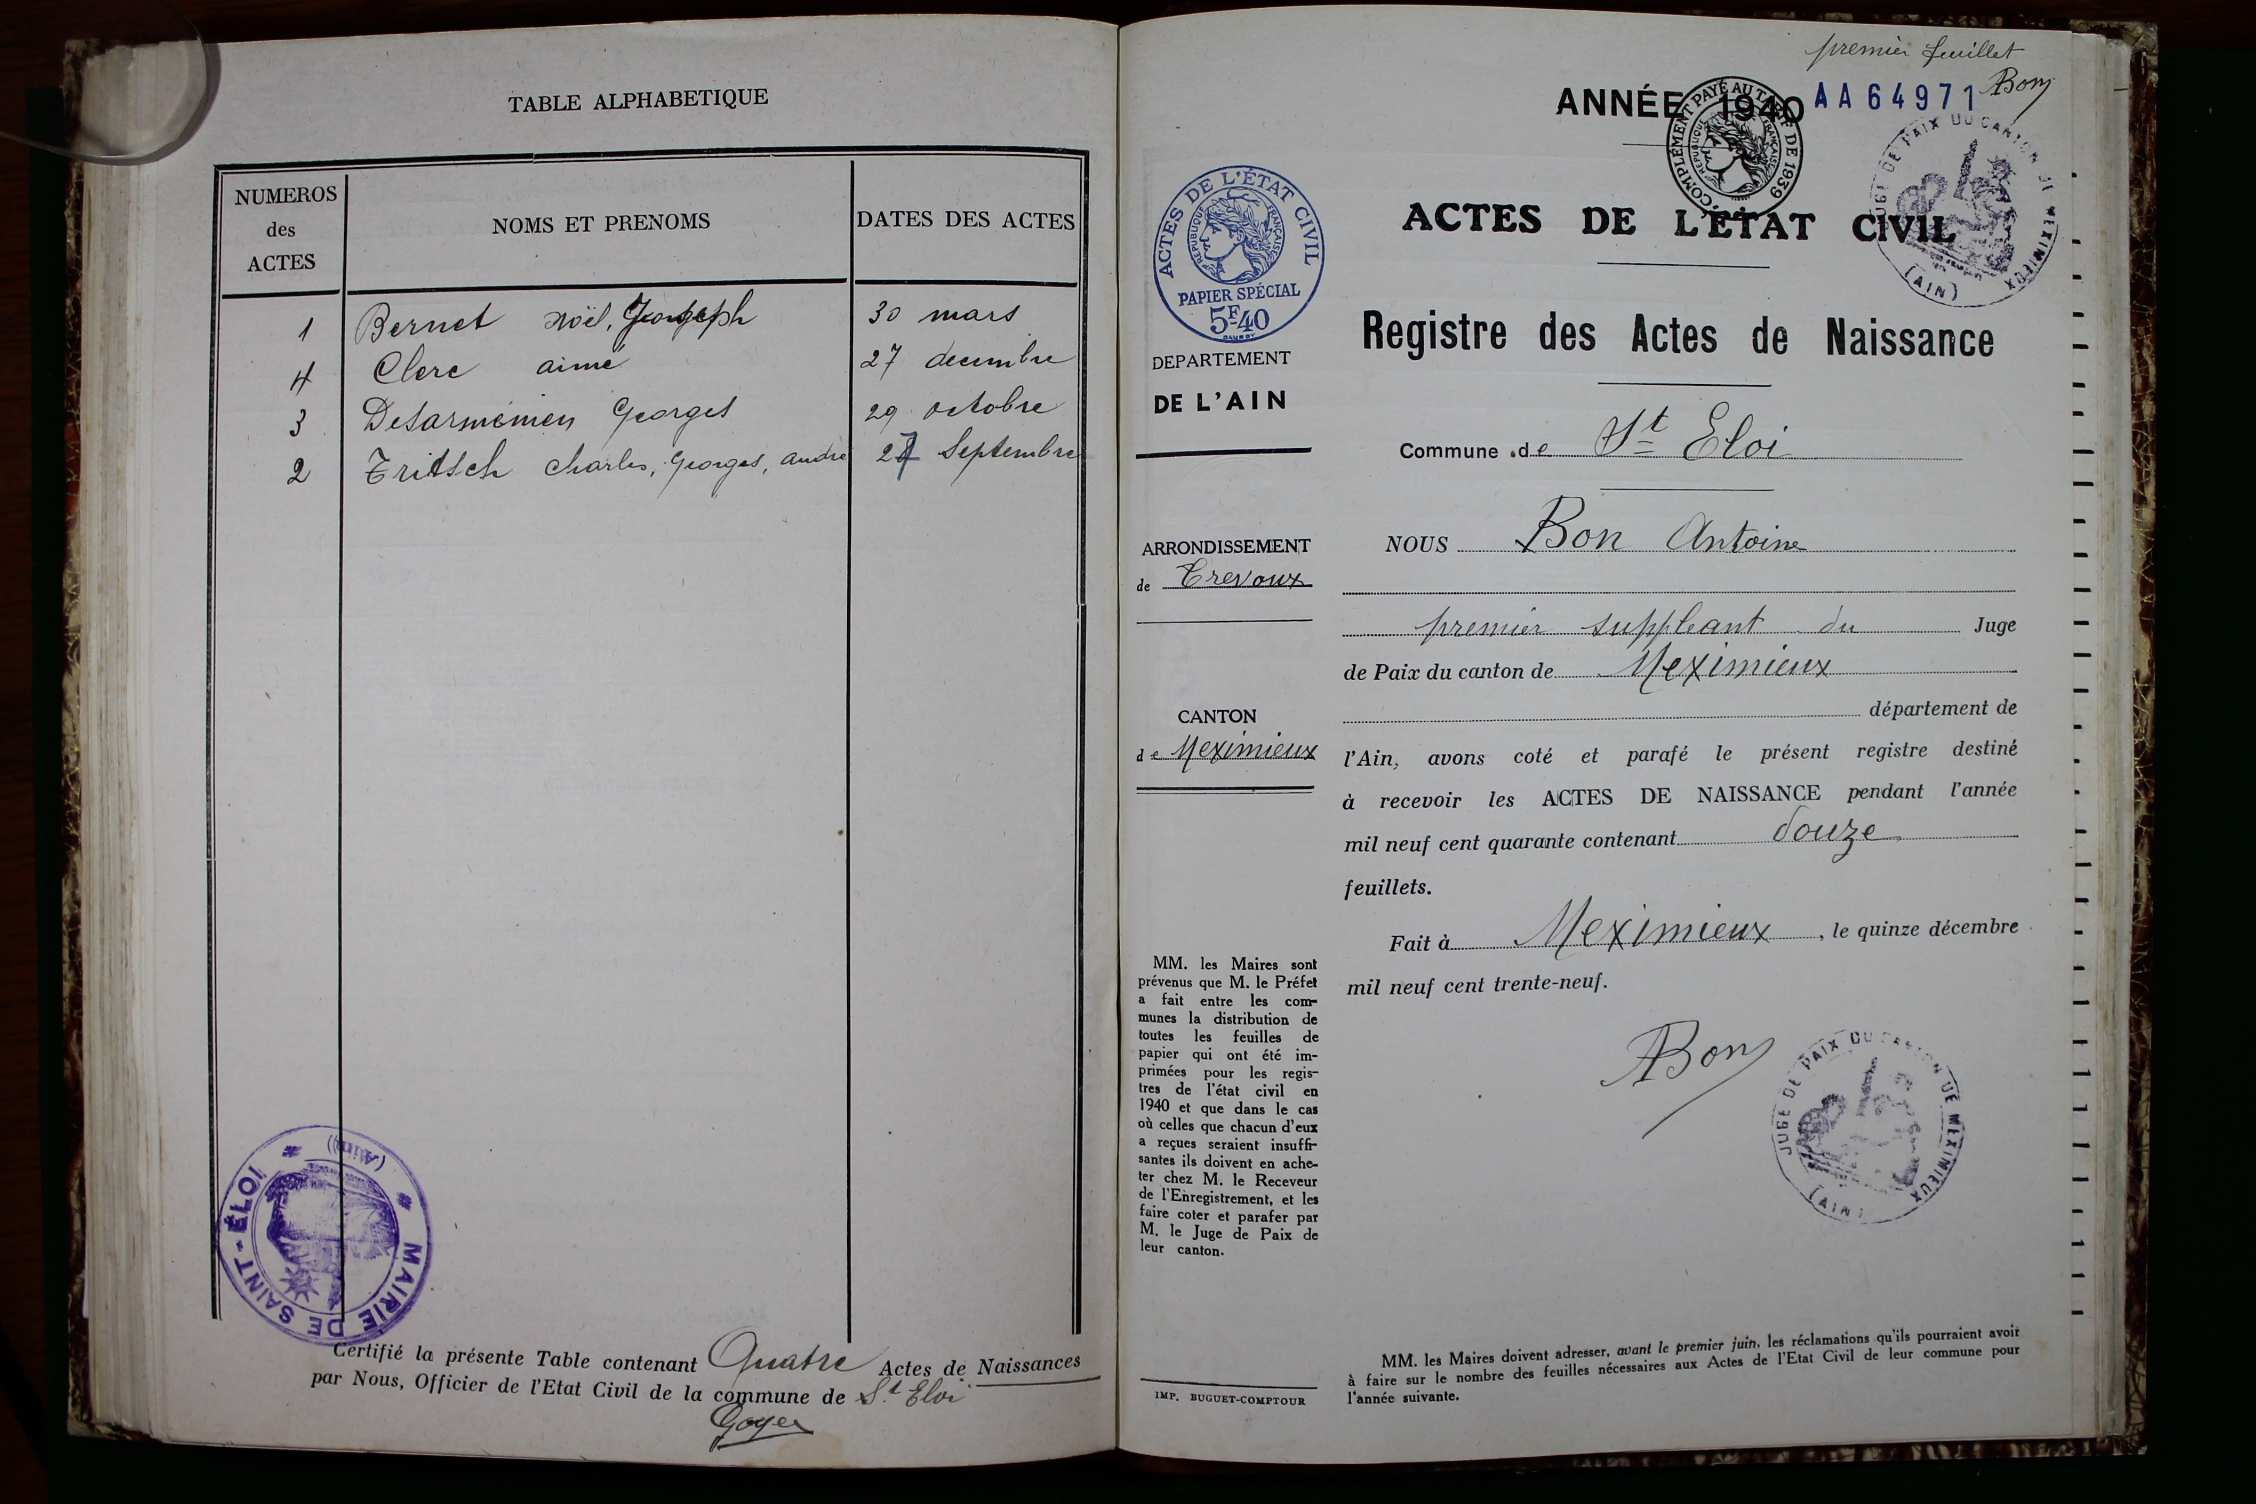 TABLE ALPHABETIQUE
NUMEROS
des
ACTES
NOMS ET PRENOMS
DATES DES ACTES
1 Bernet Noël, Joseph 30 mars
4 Clerc aimé 27 decembre
3 Desarménien Georges 29 octobre
2 Tritsch Charles, Georges, andré 27 Septembre
MAIRIE DE SAINT-ÉLOI
(Ain)
Certifié la présente Table contenant Quatre Actes de Naissances
par Nous, Officier de l'Etat Civil de la commune de St. Eloi
Goyer
premier feuillet
Bon
ANNÉE 1940
AA64971
COMPLÉMENT PAYÉ AU TARIF DE 1939
RÉPUBLIQUE FRANÇAISE
JUGE DE PAIX DU CANTON DE MEXIMIEUX
(AIN)
ACTES DE L'ÉTAT CIVIL
RÉPUBLIQUE FRANÇAISE
PAPIER SPÉCIAL
5F40
DEPARTEMENT
DE L'AIN
ARRONDISSEMENT
de Trevoux
CANTON
de Meximieux
MM. les Maires sont
prévenus que M. le Préfet
a fait entre les com-
munes la distribution de
toutes les feuilles de
papier qui ont été im-
primées pour les regis-
tres de l'état civil en
1940 et que dans le cas
où celles que chacun d'eux
a reçues seraient insuffi-
santes ils doivent en ache-
ter chez M. le Receveur
de l'Enregistrement, et les
faire coter et parafer par
M. le Juge de Paix de
leur canton.
IMP. BUGUET-COMPTOUR
ACTES DE L'ETAT CIVIL
Registre des Actes de Naissance
Commune de St Eloi
NOUS Bon Antoine
premier suppleant du Juge
de Paix du canton de Meximieux
département de
l'Ain, avons coté et parafé le présent registre destiné
à recevoir les ACTES DE NAISSANCE pendant l'année
mil neuf cent quarante contenant douze
feuillets.
Fait à Meximieux, le quinze décembre
mil neuf cent trente-neuf.
Bon
JUGE DE PAIX DU CANTON DE MEXIMIEUX
(AIN)
MM. les Maires doivent adresser, avant le premier juin, les réclamations qu'ils pourraient avoir
à faire sur le nombre des feuilles nécessaires aux Actes de l'Etat Civil de leur commune pour
l'année suivante.